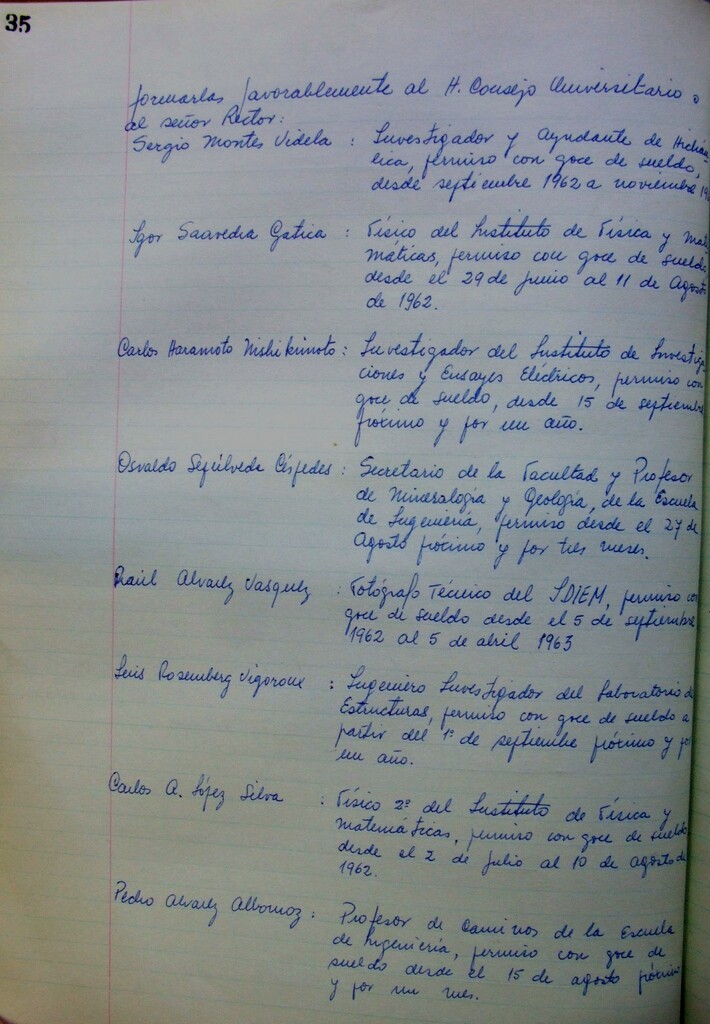 35
formarlas favorablemente al H. Consejo Universitario o
al señor Rector:
Sergio Montes Videla : Investigador y Ayudante de Hidráu
lica, permiso con goce de sueldo,
desde septiembre 1962 a noviembre 19
Igor Saavedra Gatica : Físico del Instituto de Física y Mate
máticas, permiso con goce de sueldo
desde el 29 de Junio al 11 de Agosto
de 1962.
Carlos Haramoto Nishikimoto : Investigador del Instituto de Investiga
ciones y Ensayes Eléctricos, permiso con
goce de sueldo, desde 15 de septiembre
próximo y por un año.
Osvaldo Sepúlveda Céspedes : Secretario de la Facultad y Profesor
de Mineralogía y Geología, de la Escuela
de Ingeniería, permiso desde el 27 de
Agosto próximo y por tres meses.
Raúl Alvarez Vasquez : Fotógrafo Técnico del IDIEM, permiso con
goce de sueldo desde el 5 de septiembre
1962 al 5 de abril 1963
Luis Rosemberg Vigoroux : Ingeniero Investigador del Laboratorio de
Estructuras, permiso con goce de sueldo a
partir del 1º de septiembre próximo y por
un año.
Carlos A. López Silva : Físico 2º del Instituto de Física y
Matemáticas, permiso con goce de sueldo
desde el 2 de Julio al 10 de agosto de
1962.
Pedro Alvarez Albornoz : Profesor de Caminos de la Escuela
de Ingeniería, permiso con goce de
sueldo desde el 15 de agosto próximo
y por un mes.